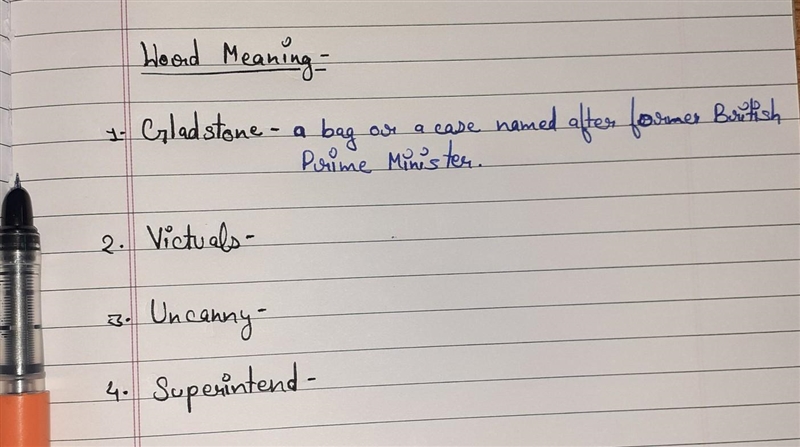 Word Meaning -
1. Gladstone - a bag or a case named after former British
Prime Minister.
2. Victuals -
3. Uncanny -
4. Superintend -